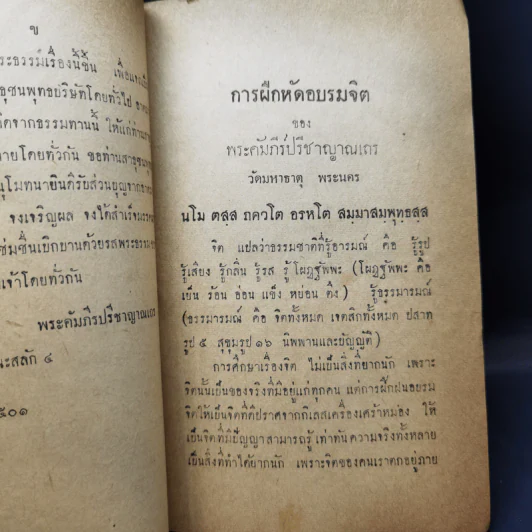 ข
ระธรรมเรื่องนี้ขึ้น เพื่อ
ชนพุทธบริษัทโดยทั่วไป
กิดจากธรรมทานนี้ ให้แก่ท่าน
ายโดยทั่วกัน ขอท่านสาธุชน
นุโมทนายินดีรับส่วนบุญจาก
จงเจริญผล จงได้สำเร็จ
ช่มชื่นเบิกบานด้วยรสพระธรรม
เจ้าโดยทั่วกัน
พระคัมภีรปรีชาญาณเถร
นะสลัก ๔
๕๐๑
การฝึกหัดอบรมจิต
ของ
พระคัมภีร์ปรีชาญาณเถร
วัดมหาธาตุ พระนคร
นโม ตสฺส ภควโต อรหโต สมฺมาสมฺพุทฺธสฺส
จิต แปลว่าธรรมชาติที่รู้อารมณ์ คือ รู้รูป
รู้เสียง รู้กลิ่น รู้รส รู้โผฏฐัพพะ (โผฏฐัพพะ คือ
เย็น ร้อน อ่อน แข็ง หย่อน ตึง) รู้ธรรมารมณ์
(ธรรมารมณ์ คือ จิตทั้งหมด เจตสิกทั้งหมด ปสาท
รูป ๕ สุขุมรูป ๑๖ นิพพานและบัญญัติ)
การศึกษาเรื่องจิต ไม่เป็นสิ่งที่ยากนัก เพราะ
จิตนั้นเป็นของจริงที่มีอยู่แก่ทุกคน แต่การฝึกฝนอบรม
จิตให้เป็นจิตที่ปราศจากกิเลสเครื่องเศร้าหมอง ให้
เป็นจิตที่มีปัญญาสามารถรู้เท่าทันความจริงทั้งหลาย
เป็นสิ่งที่ทำได้ยากนัก เพราะจิตของคนเราตกอยู่ภาย